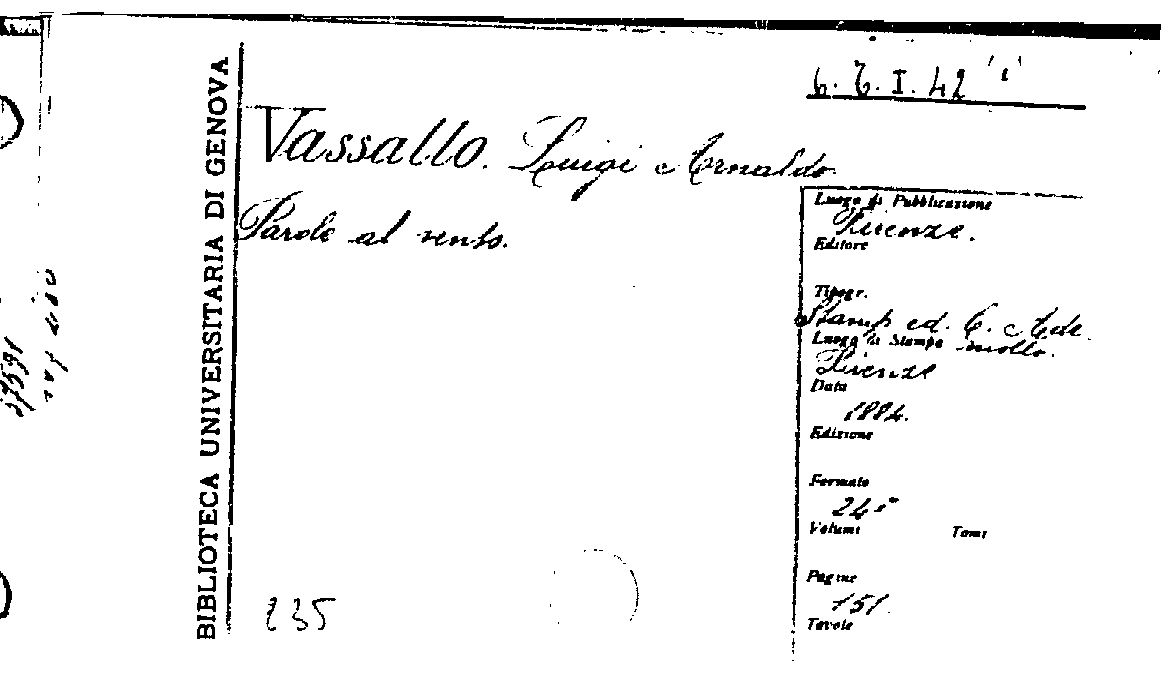 6. 7. I. 42
BIBLIOTECA UNIVERSITARIA DI GENOVA
Vassallo. Luigi Arnaldo
Parole al vento.
Luogo di Pubblicazione
Firenze.
Editore
Tipogr.
Stamp ed. C. Ade.
mollo.
Luogo di Stampa
Firenze
Data
1884.
Edizione
Formato
24°
Volumi Tomi
Pagine
151.
Tavole
235
27591